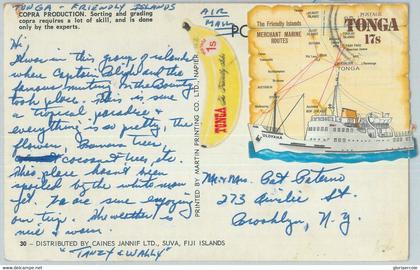 TONGA - FRIENDLY ISLANDS
COPRA PRODUCTION. Sorting and grading
copra requires a lot of skill, and is done
only by the experts.
AIR
MAIL
PO
Hi
was in this group of islands
where Captain Bligh and the
famous mutiny on the Bounty
took place. This is sure
a tropical paradise &
everything is so pretty, the
flowers, Banana trees,
cocoanut trees, etc.
This place hasn't been
spoiled by the white man
yet. To are sure enjoying
our trip. The weather is
nice & warm.
"TANEY & WALLY"
30 - DISTRIBUTED BY CAINES JANNIF LTD., SUVA, FIJI ISLANDS
PRINTED BY MARTIN PRINTING CO. LTD., NAPIER
TONGA
1s
The Friendly Islands
MERCHANT MARINE
ROUTES
POSTAGE
TONGA
17s
TONGA
OLOVAHA
Mr & Mrs. Pat Paterno
273 Ainslie St.
Brooklyn, N.Y.